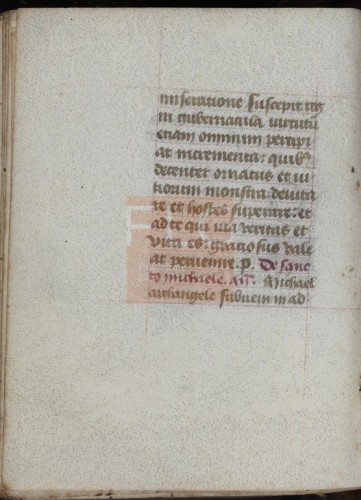 miseratione suscepit reg
ni gubernacula uirtutū
etiam omnium percipi
at incrementa: quibꝰ
decenter ornatus et ui
tiorum monstra deuita
re et hostes superare: et
ad te qui uia ueritas et
uita es: graciosus uale
at peruenire. p̄. De sanc
to michaele. añ. Michael
archangele subueni in ad